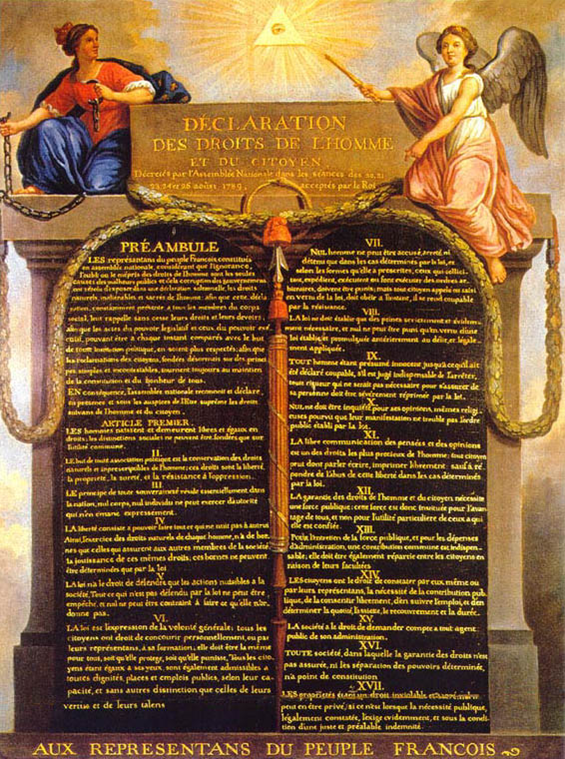 DÉCLARATION
DES DROITS DE L'HOMME
ET DU CITOYEN,
Décrétés par l'Assemblée Nationale dans les séances des 20, 21
23, 24 et 26 août 1789, acceptés par le Roi
PRÉAMBULE
LES représentans du peuple François, constitués
en assemblée nationale, considérant que l'ignorance,
l'oubli ou le mépris des droits de l'homme sont les seules
causes des malheurs publics et de la corruption des gouvernemens
ont résolu d'exposer dans une déclaration solemnelle, les droits
naturels, inaliénables et sacrés de l'homme; afin que cette décla
ration, constamment présente à tous les membres du corps
social, leur rappelle sans cesse leurs droits et leurs devoirs;
afin que les actes du pouvoir législatif et ceux du pouvoir ex
écutif, pouvant être à chaque instant comparés avec le but
de toute institution politique, en soient plus respectés; afin que
les réclamations des citoyens, fondées désormais sur des princi
pes simples et incontestables, tournent toujours au maintien
de la constitution et du bonheur de tous.
EN conséquence, l'assemblée nationale reconnoit et déclare,
en présence et sous les auspices de l'Etre suprême les droits
suivans de l'homme et du citoyen.
ARTICLE PREMIER.
LES hommes naissent et demeurent libres et égaux en
droits; les distinctions sociales ne peuvent être fondées que sur
l'utilité commune.
II.
LE but de toute association politique est la conservation des droits
naturels et imprescriptibles de l'homme; ces droits sont la liberté,
la propriété, la sureté, et la résistance à l'oppression.
III
LE principe de toute souveraineté réside essentiellement dans
la nation, nul corps, nul individu ne peut exercer d'autorité
qui n'en émane expressément.
IV
LA liberté consiste à pouvoir faire tout ce qui ne nuit pas à autrui
Ainsi, l'exercice des droits naturels de chaque homme, n'a de bor
nes que celles qui assurent aux autres membres de la société
la jouissance de ces mêmes droits; ces bornes ne peuvent
être déterminées que par la loi
V.
LA loi n'a le droit de défendre que les actions nuisibles à la
société. Tout ce qui n'est pas défendu par la loi ne peut être
empêché, et nul ne peut être contraint à faire ce qu'elle n'or
donne pas.
VI.
LA loi est l'expression de la volonté générale; tous les
citoyens ont droit de concourir personnellement, ou par
leurs représentans, à sa formation; elle doit être la même
pour tous, soit qu'elle protege, soit qu'elle punisse. Tous les cito
yens étant égaux à ses yeux, sont également admissibles à
toutes dignités, places et emplois publics, selon leur ca
pacité, et sans autres distinction que celles de leurs
vertus et de leurs talens
VII.
NUL homme ne peut être accusé, arrêté, ni
détenu que dans les cas déterminés par la loi, et
selon les formes qu'elle a prescrites, ceux qui sollici
tent, expédient, exécutent ou font exécuter des ordres ar
bitraires, doivent être punis; mais tout citoyen appelé ou saisi
en vertu de la loi, doit obéir à l'instant, il se rend coupable
par la résistance.
VIII.
LA loi ne doit établir que des peines strictement et évidem
ment nécessaires, et nul ne peut être puni qu'en vertu d'une
loi établie et promulguée antérieurement au délit, et légale
ment appliquée.
IX.
TOUT homme étant présumé innocent jusqu'à ce qu'il ait
été déclaré coupable, s'il est jugé indispensable de l'arrêter,
toute rigueur qui ne serait pas nécessaire pour s'assurer de
sa personne doit être sévèrement réprimée par la loi.
X.
NUL ne doit être inquiété pour ses opinions, mêmes religi
euses pourvu que leur manifestation ne trouble pas l'ordre
public établi par la loi.
XI.
LA libre communication des pensées et des opinions
est un des droits les plus precieux de l'homme; tout citoyen
peut donc parler, écrire, imprimer librement, sauf à ré
pondre de l'abus de cette liberté dans les cas déterminés
par la loi.
XII.
LA garantie des droits de l'homme et du citoyen nécessite
une force publique; cette force est donc instituée pour l'avan
tage de tous, et non pour l'utilité particuliere de ceux a qui
elle est confiée.
XIII.
Pour l'entretien de la force publique, et pour les dépenses
d'administration, une contribution commune est indispen
sable; elle doit être également répartie entre les citoyens en
raison de leurs facultées
XIV.
LES citoyens ont le droit de constater par eux même ou
par leurs représentans, la nécessité de la contribution pub
lique, de la consentir librement, d'en suivre l'emploi, et d'en
déterminer la quotité, l'assiette, le recouvrement et la durée.
XV.
LA société a le droit de demander compte a tout agent
public de son administration.
XVI.
TOUTE société, dans laquelle la garantie des droits n'est
pas assurée, ni la séparation des pouvoirs déterminée,
n'a point de constitution
XVII.
LES propriétés étant un droit inviolable et sacré, nul ne
peut en être privé, si ce n'est lorsque la nécessité publique,
légalement constatée, l'exige evidemment, et sous la condi
tion d'une juste et préalable indemnité.
AUX REPRESENTANS DU PEUPLE FRANCOIS